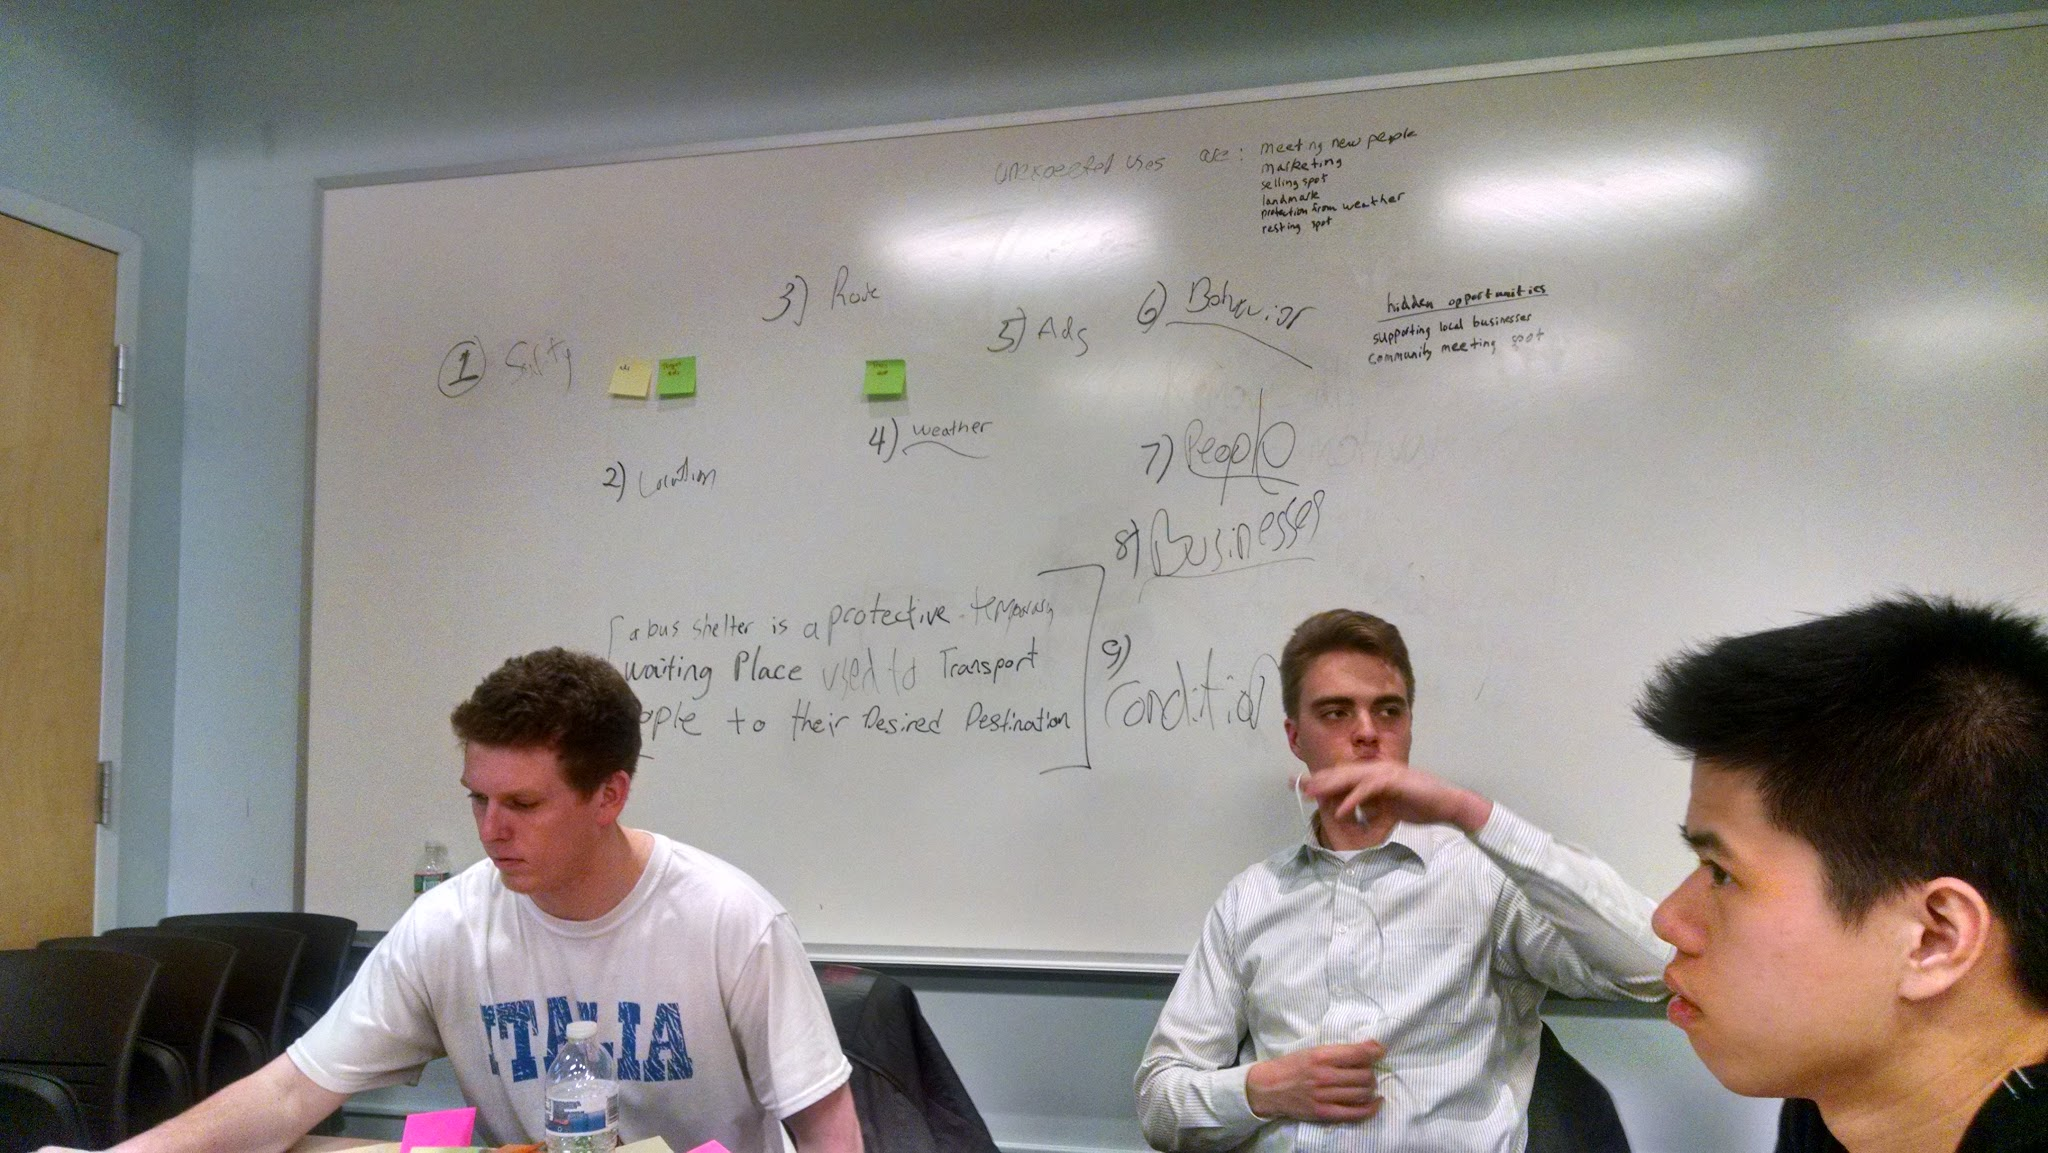 unexpected uses are:
meeting new people
marketing
selling spot
landmark
protection from weather
resting spot
hidden opportunities
supporting local businesses
community meeting spot
1
2) Location
3) Route
4) weather
5) Ads
6) Behavior
7) People
8) Businesses
9) Condition
a bus shelter is a protective temporary
waiting Place used to Transport
ople to their Desired Destination
ITALIA